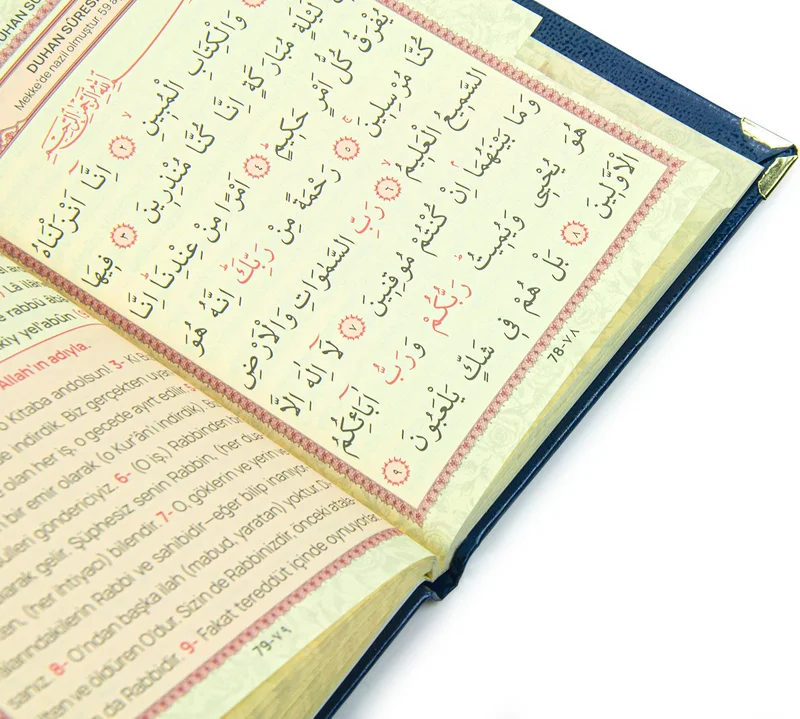 DUHAN SÛRESİ
Mekke'de nazil olmuştur. 59
بِسْمِ اللّٰهِ الرَّحْمٰنِ الرَّحِيمِ
وَالْكِتَابِ الْمُبِينِۙ ٢ اِنَّٓا اَنْزَلْنَاهُ
لَيْلَةٍ مُبَارَكَةٍ اِنَّا كُنَّا مُنْذِرِينَ ٣ فِيهَا
يُفْرَقُ كُلُّ اَمْرٍ حَكِيمٍۙ ٤ اَمْرًا مِنْ عِنْدِنَاۜ اِنَّا
كُنَّا مُرْسِلِينَۚ ٥ رَحْمَةً مِنْ رَبِّكَۜ اِنَّهُ هُوَ
السَّمِيعُ الْعَلِيمُۙ ٦ رَبِّ السَّمٰوَاتِ وَالْاَرْضِ
وَمَا بَيْنَهُمَاۢ اِنْ كُنْتُمْ مُوقِنِينَ ٧ لَٓا اِلٰهَ اِلَّا
هُوَ يُحْيِي وَيُمِيتُۜ رَبُّكُمْ وَرَبُّ اٰبَٓائِكُمُ
الْاَوَّلِينَ ٨ بَلْ هُمْ فِي شَكٍّ يَلْعَبُونَ ٩
78-٧٨
Lâ
rabbü
Allah'ın adıyla.
o Kitaba andolsun! 3-
indirdik. Biz gerçekten
olan her iş, o gecede ayırt edilir.
bir emir olarak (o Kur'ân'ı indirdik).
göndericiyiz. 6- (O iş) Rabbinden
olarak gelir. Şüphesiz senin Rabbin, (her
(her ihtiyacı) bilendir. 7- O, göklerin ve yerin
Rabbi ve sahibidir—eğer bilip
8- O'ndan başka ilah (mabud, yaratan) yoktur.
ve öldüren O'dur. Sizin de Rabbinizdir, önceki
da Rabbidir. 9- Fakat tereddüt içinde oynuyorlar
79-٧٩